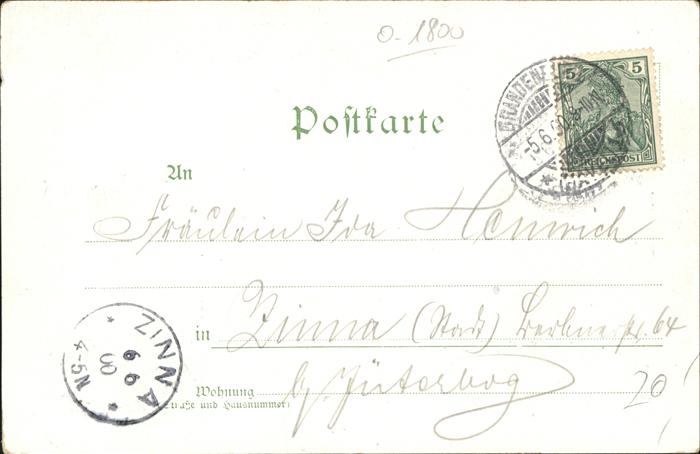 0-1800
5 5
REICHSPOST
BRANDENB
-5.6.
Postkarte
An
Fräulein Ida Henwich
in Zinna (Stadt) Berliner str. 64
Wohnung
(Straße und Hausnummer)
b/ Jüterbog
20
ZINNA
6 6
00
4-5N